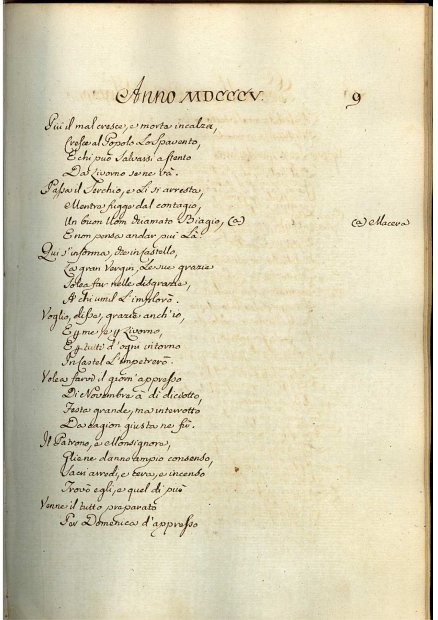 Anno MDCCCV. 9
Più il mal cresce, e morta incalza,
Cresce al Popolo Lo Spavento,
E chi può Salvarsi a stento
Da Livorno se ne và.
Passa il Serchio, e Li si arresta,
Mentre fugge dal contagio,
Un buon Uom chiamato Biagio, (a) (a) Macera
E non pensa andar più Là
Qui s'informa, che in Castello,
La gran Vergin, Le sue grazie
Solea far nelle disgrazie,
A chi umil L'implorò.
Voglio, disse, grazie anch'io,
E per me, e per Livorno,
E per tutti d'ogni intorno
In Castel L'impetrerò.
Volea farvi il giorn' appresso
Di Novembre a di diciotto,
Festa grande, ma interrotto
Da cagion giusta ne fù.
Il Patrono, e Monsignore,
Gliene danno ampio consenso,
Sacri arredi, e cera, e incenso
Trovò egli, e quel di più
Venne il tutto preparato
Per Domenica d'appresso